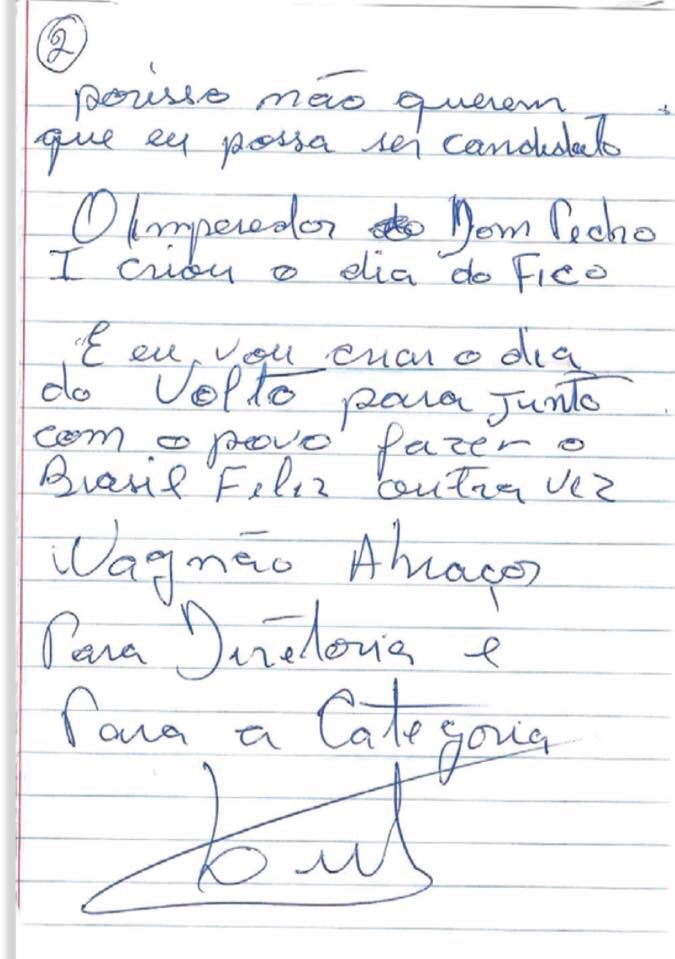 2
porisso não querem
que eu possa ser candidato
O Imperador Dom Pedro
I criou o dia do Fico
E eu vou criar o dia
do Volto para junto
com o povo fazer o
Brasil Feliz outra vez
Wagnão Abraços
Para Diretoria e
Para a Categoria